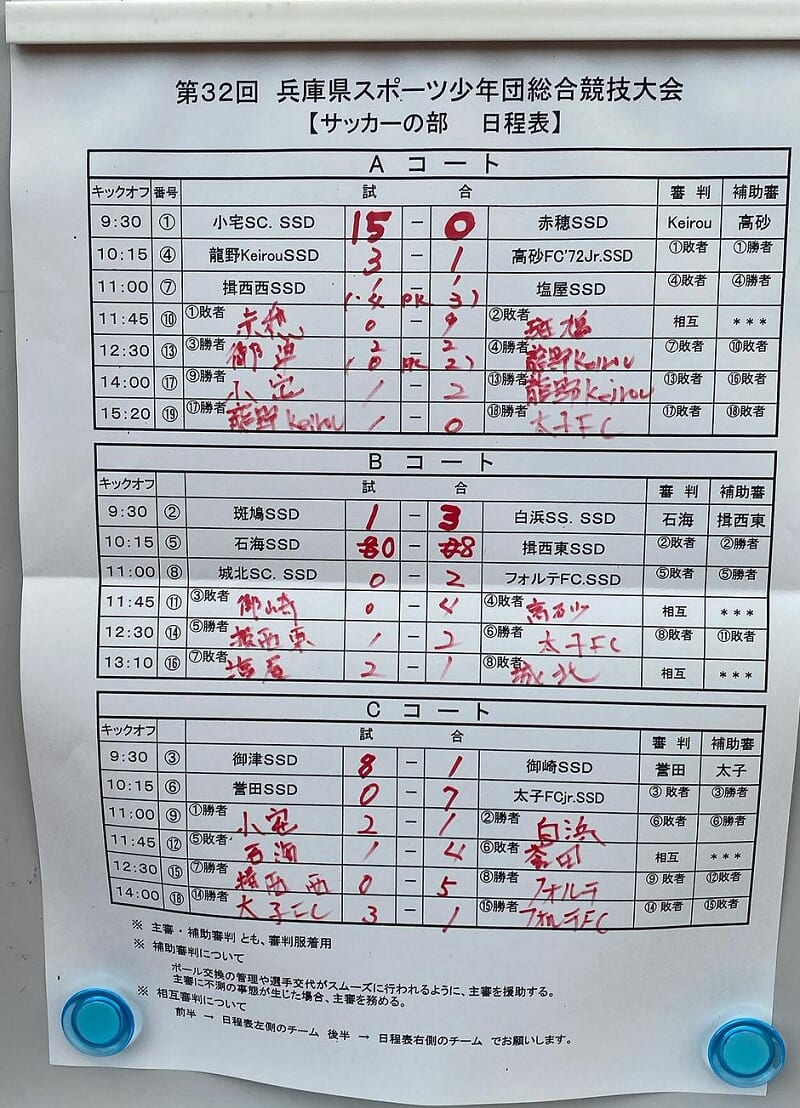 第32回 兵庫県スポーツ少年団総合競技大会
【サッカーの部 日程表】
A コート
キックオフ 番号 試 合 審 判 補助審
9:30 ① 小宅SC. SSD 15 － 0 赤穂SSD Keirou 高砂
10:15 ④ 龍野KeirouSSD 3 － 1 高砂FC'72Jr.SSD ①敗者 ①勝者
11:00 ⑦ 揖西西SSD 1 － 1 塩屋SSD ④敗者 ④勝者
(4 PK 3)
11:45 ⑩ ①敗者 赤穂 0 － 9 ②敗者 斑鳩 相互 ＊＊＊
12:30 ⑬ ③勝者 御津 2 － 2 ④勝者 龍野Keirou ⑦敗者 ⑩敗者
(0 PK 2)
14:00 ⑰ ⑨勝者 小宅 1 － 2 ⑬勝者 龍野Keirou ⑬敗者 ⑯敗者
15:20 ⑲ ⑰勝者 龍野Keirou 1 － 0 ⑱勝者 太子FC ⑰敗者 ⑱敗者
B コート
キックオフ 試 合 審 判 補助審
9:30 ② 斑鳩SSD 1 － 3 白浜SS. SSD 石海 揖西東
10:15 ⑤ 石海SSD 0 － 8 揖西東SSD ②敗者 ②勝者
11:00 ⑧ 城北SC. SSD 0 － 2 フォルテFC.SSD ⑤敗者 ⑤勝者
11:45 ⑪ ③敗者 御崎 0 － 4 ④敗者 高砂 相互 ＊＊＊
12:30 ⑭ ⑤勝者 揖西東 1 － 2 ⑥勝者 太子FC ⑧敗者 ⑪敗者
13:10 ⑯ ⑦敗者 塩屋 2 － 1 ⑧敗者 城北 相互 ＊＊＊
C コート
キックオフ 試 合 審 判 補助審
9:30 ③ 御津SSD 8 － 1 御崎SSD 誉田 太子
10:15 ⑥ 誉田SSD 0 － 7 太子FCjr.SSD ③敗者 ③勝者
11:00 ⑨ ①勝者 小宅 2 － 1 ②勝者 白浜 ⑥敗者 ⑥勝者
11:45 ⑫ ⑤敗者 石海 1 － 4 ⑥敗者 誉田 相互 ＊＊＊
12:30 ⑮ ⑦勝者 揖西西 0 － 5 ⑧勝者 フォルテ ⑨敗者 ⑫敗者
14:00 ⑱ ⑭勝者 太子FC 3 － 1 ⑮勝者 フォルテFC ⑭敗者 ⑮敗者
※ 主審・補助審判とも、審判服着用
※ 補助審判について
ボール交換の管理や選手交代がスムーズに行われるように、主審を援助する。
主審に不測の事態が生じた場合、主審を務める。
※ 相互審判について
前半 → 日程表左側のチーム 後半 → 日程表右側のチーム でお願いします。